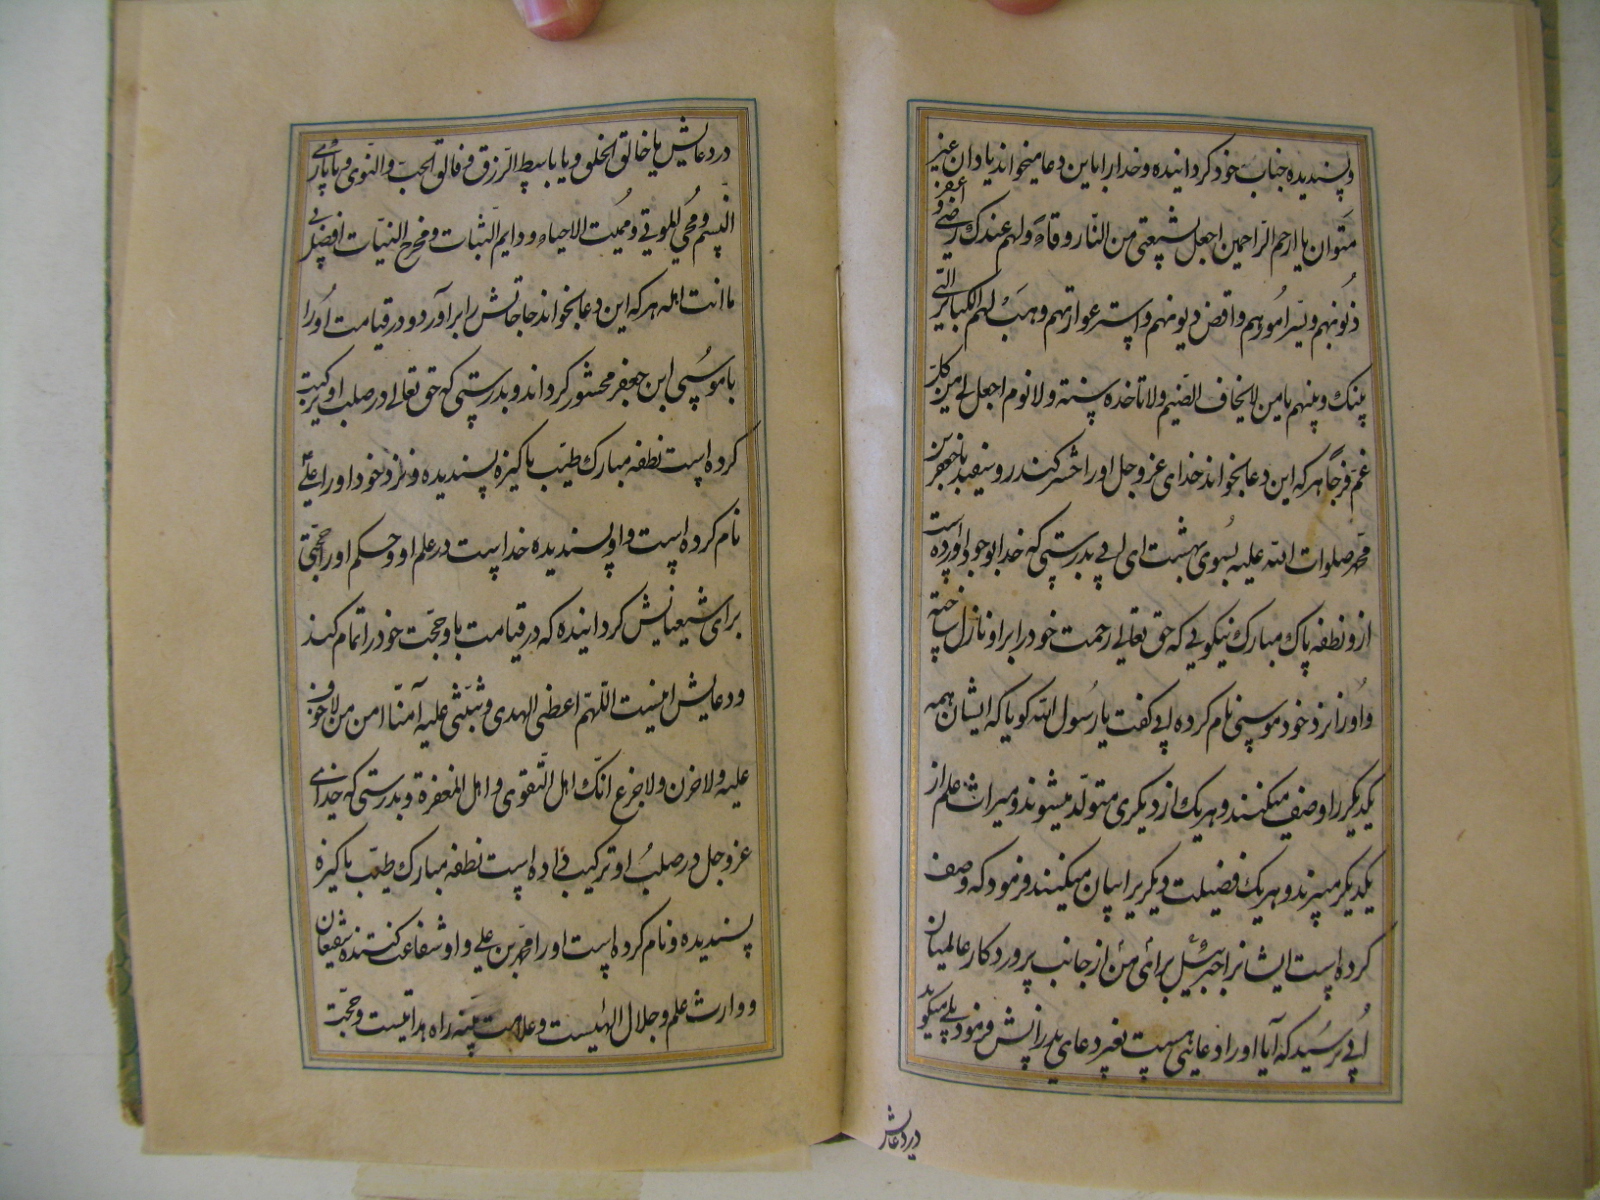 و پسندیده جناب خود کردانیده و خدا را باین دعا میخواند یا دان غیر
متوان یا ارحم الراحمین اجعل لشیعتی من النار وقاءً ولهم عندک رضی و اغفر
ذنوبهم ویسّر امورهم واقض دیونهم واستر عوراتهم وهب لهم الکبائر التی
بینک وبینهم یا من لا یخاف الضیم ولا تاخذه سنة ولا نوم اجعل لی من کل
غم فرجاً هر که این دعا بخواند خدای عز و جل او را حشر کند رو سفید با جعفر بن
محمد صلوات الله علیه بسوی بهشت ای ابی بدرستی که خدا بوجود آورده است
ازو نطفه پاک مبارک نیکویی که حق تعالی رحمت خود را بر او نازل ساخته
و او را نزد خود موسی نام کرده ابی کفت یا رسول الله کویا که ایشان همه
یکدیکر را وصف میکنند و هر یک از دیکری متولد میشوند و میراث علم از
یکدیکر میبرند و هر یک فضیلت دیکریرا بیان میکنند فرمود که وصف
کرده است ایشانرا جبرئیل برای من از جانب پروردکار عالمیان
ابی پرسید که آیا او را دعایی هست بغیر دعای پدرانش فرمود بلی میکوید
در دعایش
در دعایش یا خالق الخلق ویا باسط الرزق وفالق الحب والنوی ویا باری
النسم ومحیی الموتی وممیت الاحیاء ودایم الثبات ومخرج النبات افعل بی
ما انت اهله هر که این دعا بخواند حاجاتش را برآورد و در قیامت او را
با موسی ابن جعفر محشور کرداند و بدرستی که حق تعالی در صلب او ترکیب
کرده است نطفه مبارک طیب پاکیزه پسندیده و نزد خود او را علی
نام کرده است و او پسندیده خداست در علم او و حکم او را حجتی
برای شیعیانش کردانیده که در قیامت باو حجت خود را تمام کند
و دعایش اینست اللهم اعطنی الهدی وثبتنی علیه آمنا امن من لا خوف
علیه ولا حزن ولا جزع انک اهل التقوی واهل المغفرة و بدرستی که خدای
عز و جل در صلب او ترکیب داده است نطفه مبارک طیب پاکیزه
پسندیده و نام کرده است او را محمد بن علی و او شفاعت کننده شیعیان
و وارث علم و جلال الهیست و علامت بینه راه هدایتست و حجت